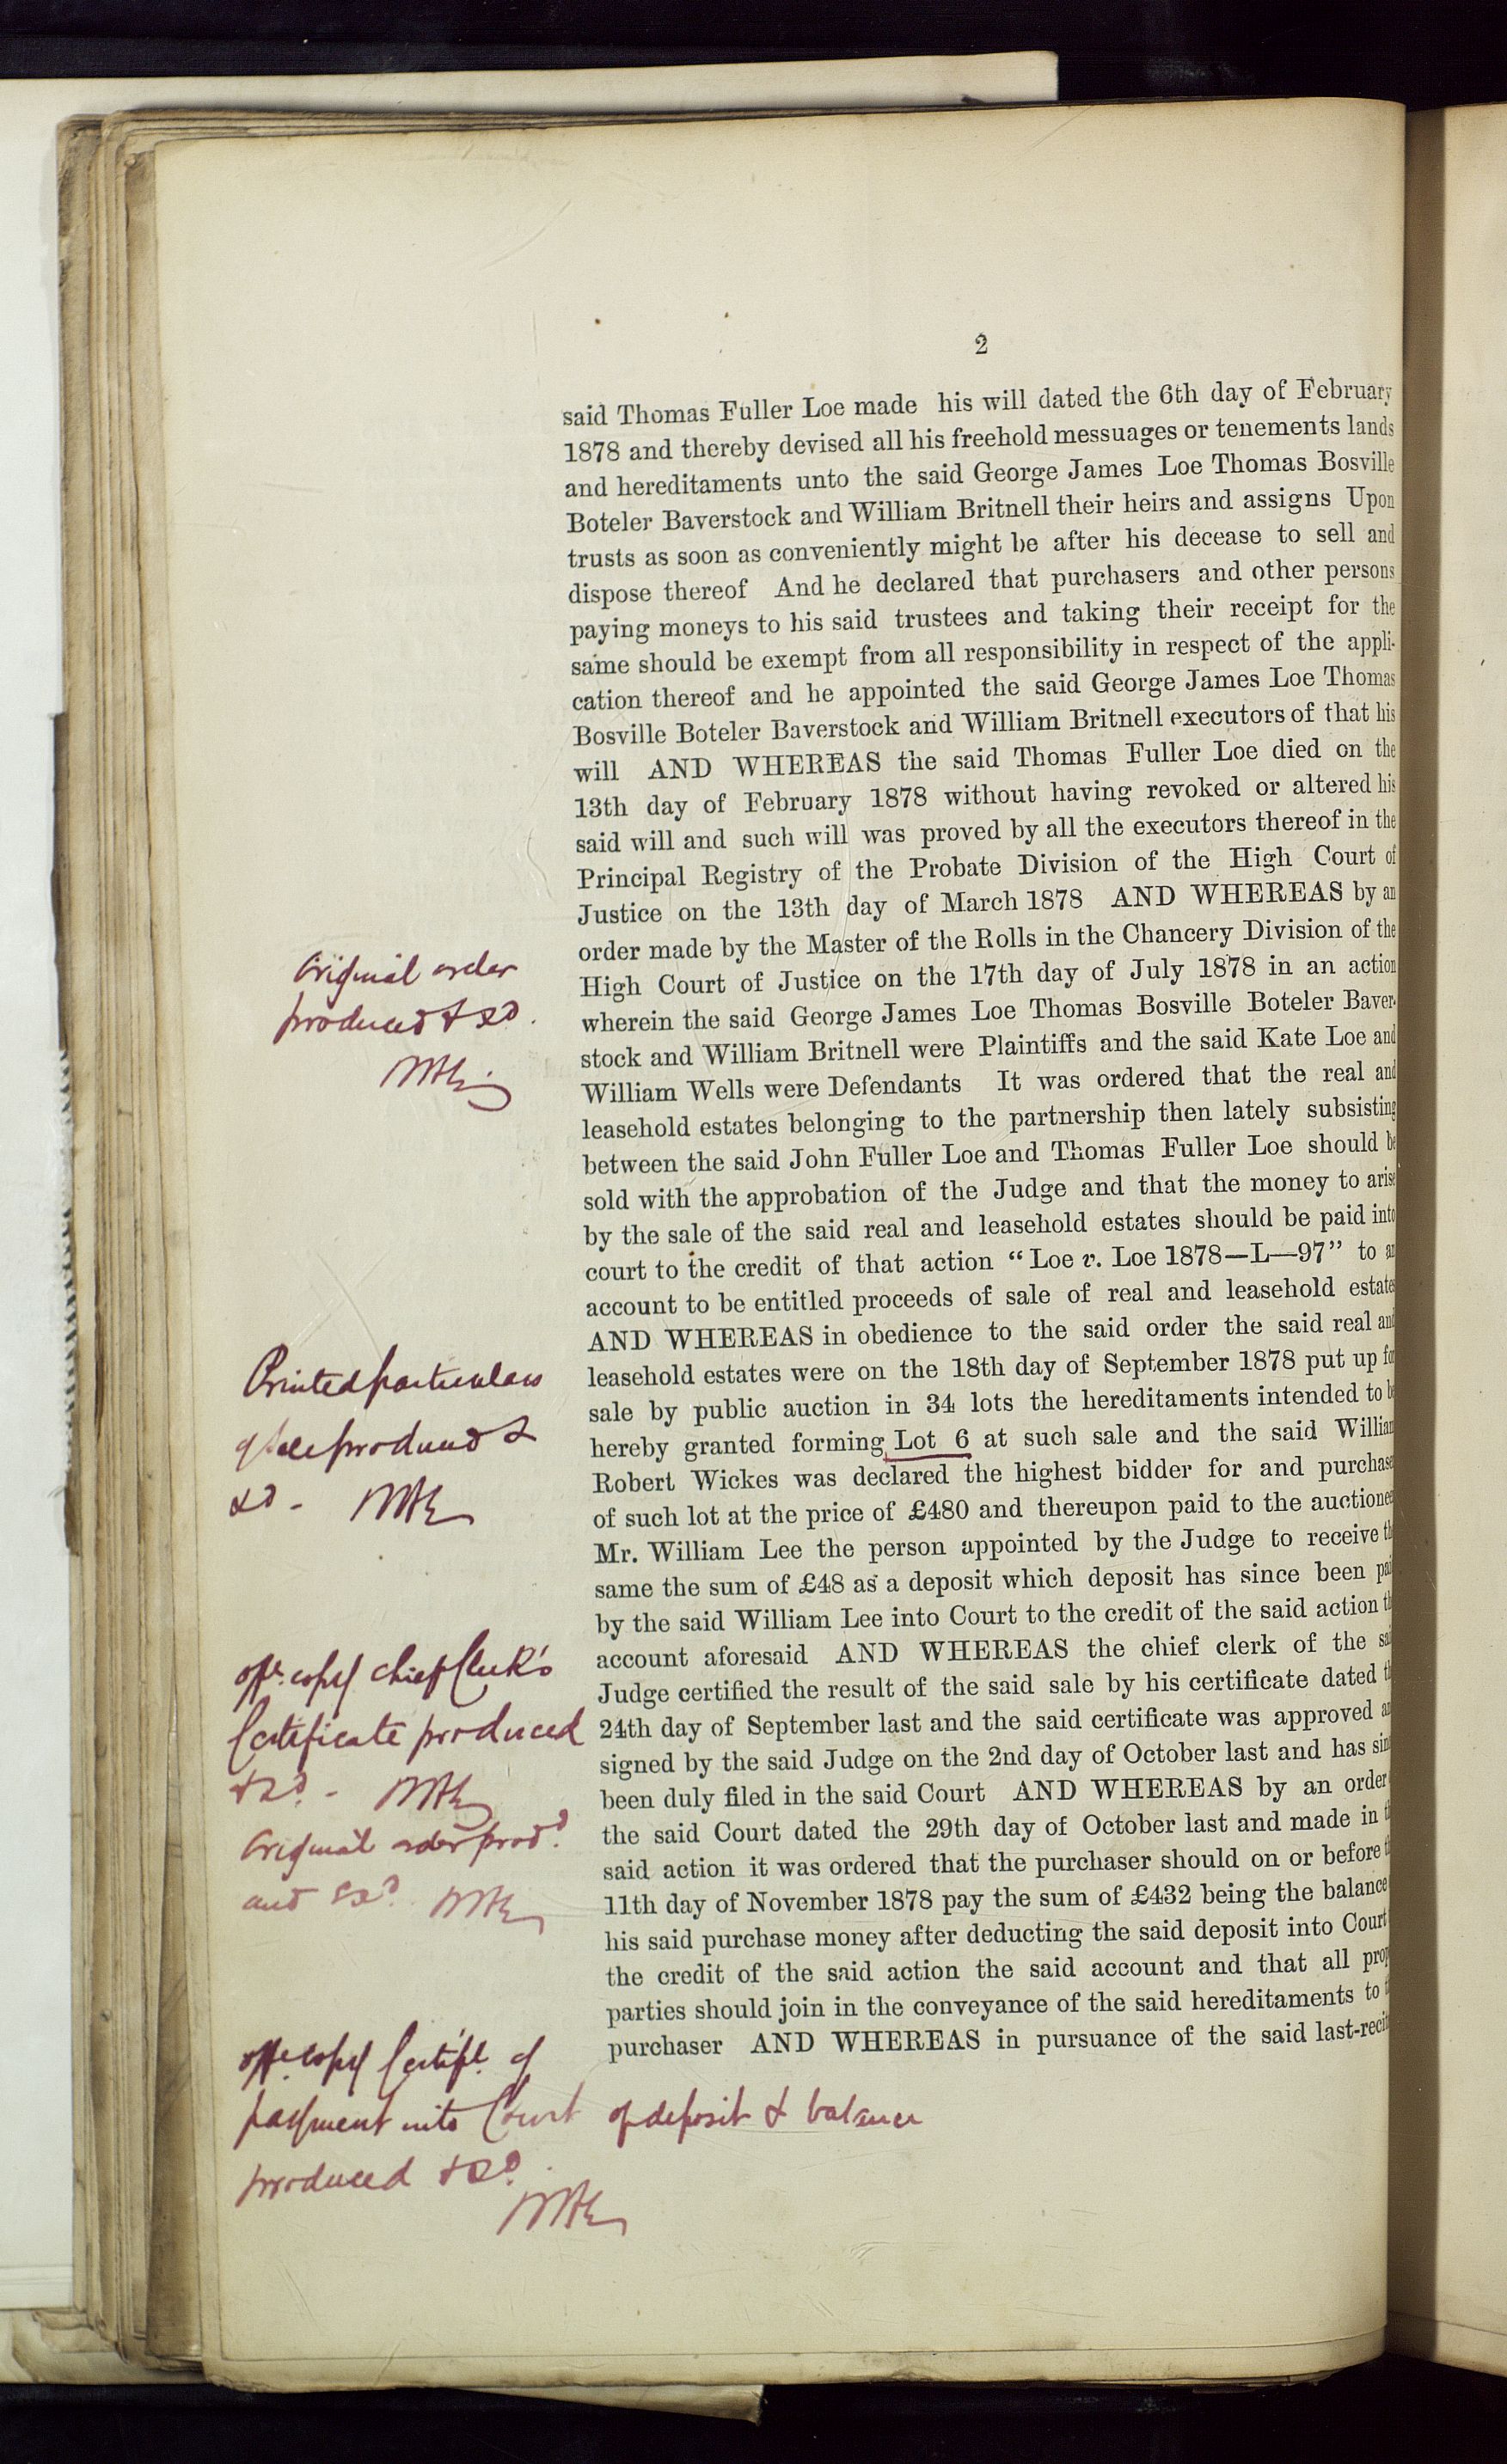 2
said Thomas Fuller Loe made his will dated the 6th day of February
1878 and thereby devised all his freehold messuages or tenements lands
and hereditaments unto the said George James Loe Thomas Bosville
Boteler Baverstock and William Britnell their heirs and assigns Upon
trusts as soon as conveniently might be after his decease to sell and
dispose thereof And he declared that purchasers and other persons
paying moneys to his said trustees and taking their receipt for the
same should be exempt from all responsibility in respect of the appli-
cation thereof and he appointed the said George James Loe Thomas
Bosville Boteler Baverstock and William Britnell executors of that his
will AND WHEREAS the said Thomas Fuller Loe died on the
13th day of February 1878 without having revoked or altered his
said will and such will was proved by all the executors thereof in the
Principal Registry of the Probate Division of the High Court of
Justice on the 13th day of March 1878 AND WHEREAS by an
order made by the Master of the Rolls in the Chancery Division of the
High Court of Justice on the 17th day of July 1878 in an action
wherein the said George James Loe Thomas Bosville Boteler Baver-
stock and William Britnell were Plaintiffs and the said Kate Loe and
William Wells were Defendants It was ordered that the real and
leasehold estates belonging to the partnership then lately subsisting
between the said John Fuller Loe and Thomas Fuller Loe should be
sold with the approbation of the Judge and that the money to arise
by the sale of the said real and leasehold estates should be paid into
court to the credit of that action “Loe v. Loe 1878—L—97” to an
account to be entitled proceeds of sale of real and leasehold estates
AND WHEREAS in obedience to the said order the said real and
leasehold estates were on the 18th day of September 1878 put up for
sale by public auction in 34 lots the hereditaments intended to be
hereby granted forming Lot 6 at such sale and the said William
Robert Wickes was declared the highest bidder for and purchaser
of such lot at the price of £480 and thereupon paid to the auctioneer
Mr. William Lee the person appointed by the Judge to receive the
same the sum of £48 as a deposit which deposit has since been paid
by the said William Lee into Court to the credit of the said action the
account aforesaid AND WHEREAS the chief clerk of the said
Judge certified the result of the said sale by his certificate dated the
24th day of September last and the said certificate was approved and
signed by the said Judge on the 2nd day of October last and has since
been duly filed in the said Court AND WHEREAS by an order
the said Court dated the 29th day of October last and made in the
said action it was ordered that the purchaser should on or before the
11th day of November 1878 pay the sum of £432 being the balance
his said purchase money after deducting the said deposit into Court
the credit of the said action the said account and that all prop
parties should join in the conveyance of the said hereditaments to the
purchaser AND WHEREAS in pursuance of the said last-recit
Original order
produced & xd.
Printed particulars
of sale produced &
xd -
offe. copy chief Clerk's
Certificate produced
& xd. -
Original order prod.d
and Exd.
offe. copy Certife. of
payment into Court of deposit & balance
produced & xd.